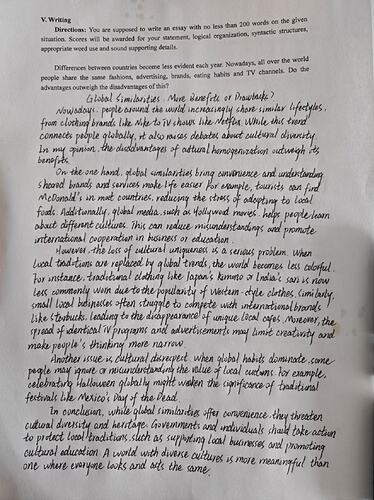 V. Writing
Directions: You are supposed to write an essay with no less than 200 words on the given
situation. Scores will be awarded for your statement, logical organization, syntactic structures,
appropriate word use and sound supporting details.
Differences between countries become less evident each year. Nowadays, all over the world
people share the same fashions, advertising, brands, eating habits and TV channels. Do the
advantages outweigh the disadvantages of this?
Global Similarities: More Benefits or Drawbacks?
Nowadays, people around the world increasingly share similar lifestyles,
from clothing brands like Nike to TV shows like Netflix. While this trend
connects people globally, it also raises debates about cultural diversity.
In my opinion, the disadvantages of cultural homogenization outweigh its
benefits.
On the one hand, global similarities bring convenience and understanding.
shared brands and services make life easier. For example, tourists can find
McDonald's in most countries, reducing the stress of adapting to local
foods. Additionally, global media, such as Hollywood movies, helps people learn
about different cultures. This can reduce misunderstandings and promote
international cooperation in business or education.
However, the loss of cultural uniqueness is a serious problem. When
local traditions are replaced by global trends, the world becomes less colorful.
For instance, traditional clothing like Japan's kimono or India's sari is now
less commonly worn due to the popularity of Western-style clothes. similarly,
small local businesses often struggle to compete with international brands
like Starbucks, leading to the disappearance of unique local cafes. Moreover, the
spread of identical TV programs and advertisements may limit creativity and
make people's thinking more narrow.
Another issue is cultural disrespect. when global habits dominate, some
people may ignore or misunderstanding the value of local customs. For example,
celebrating Halloween globally might weaken the significance of traditional
festivals like Mexico's Day of the Dead.
In conclusion, while global similarities offer convenience, they threaten
cultural diversity and heritage. Governments and individuals should take action
to protect local traditions, such as supporting local businesses and promoting
cultural education. A world with diverse cultures is more meaningful than
one where everyone looks and acts the same.